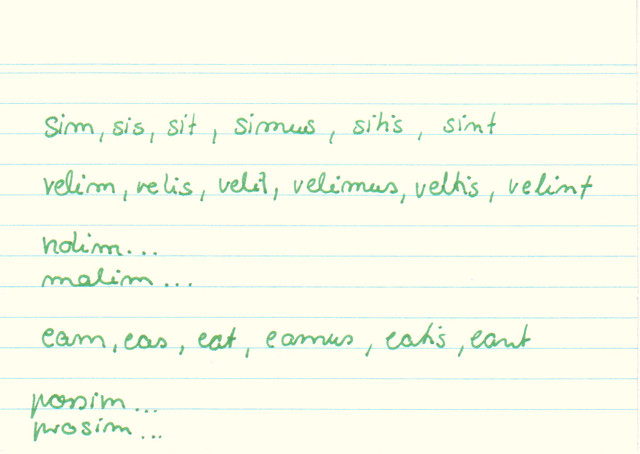 sim, sis, sit, simus, sitis, sint
velim, velis, velit, velimus, veltis, velint
nolim...
malim...
eam, eas, eat, eamus, eatis, eant
possim...
prosim...